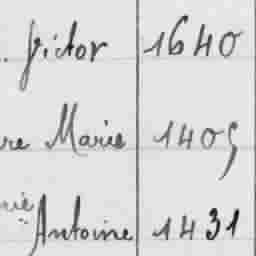 Victor 1640
re Marie 1409
rie Antoine 1431